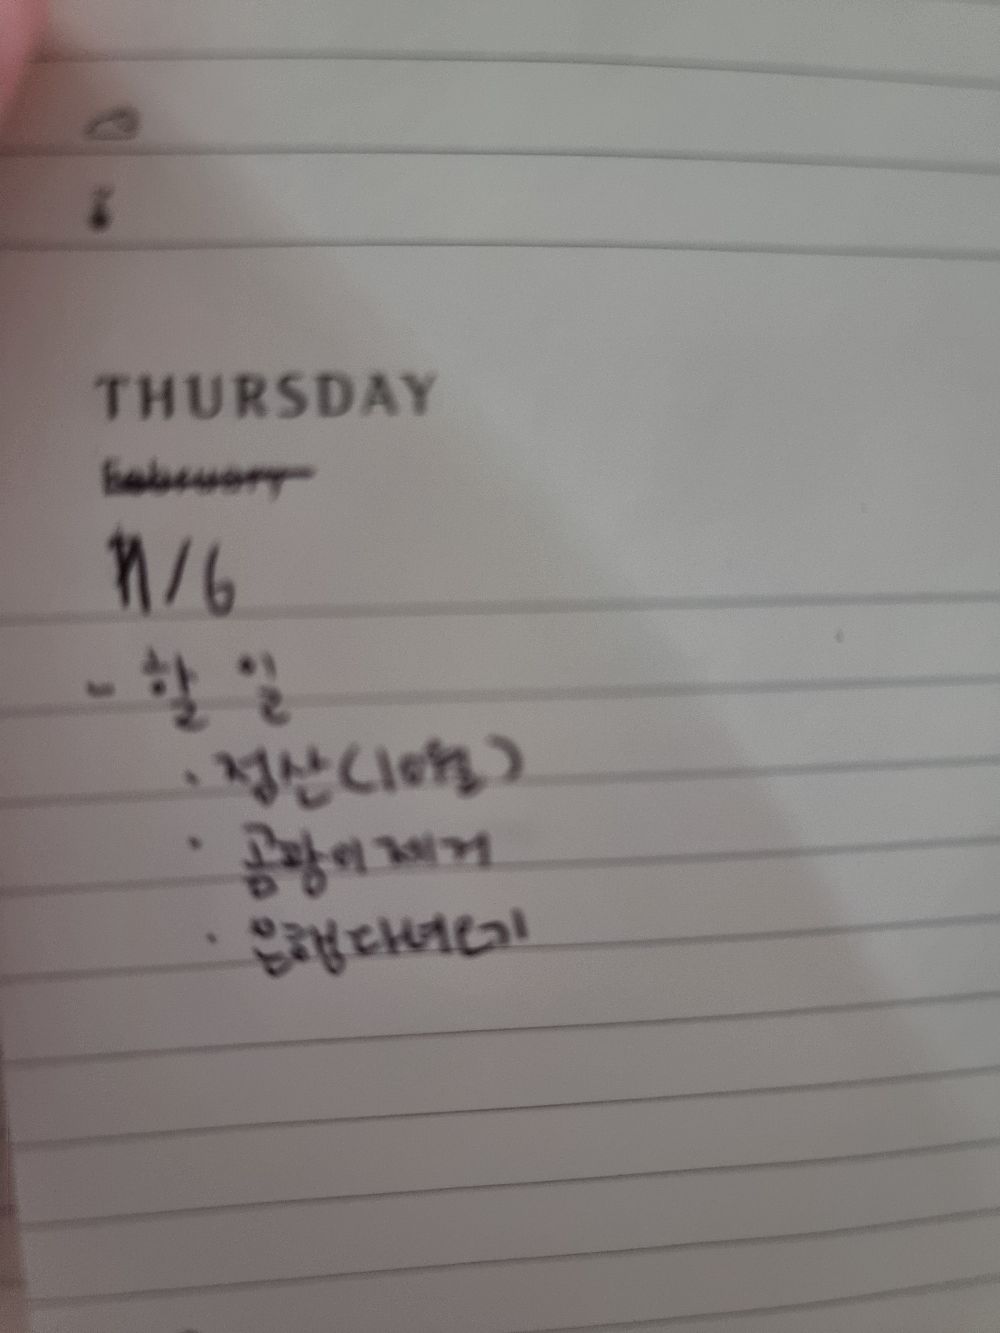 THURSDAY
February
11/6
- 할 일
· 정산(10월)
· 곰팡이제거
· 은행다녀오기